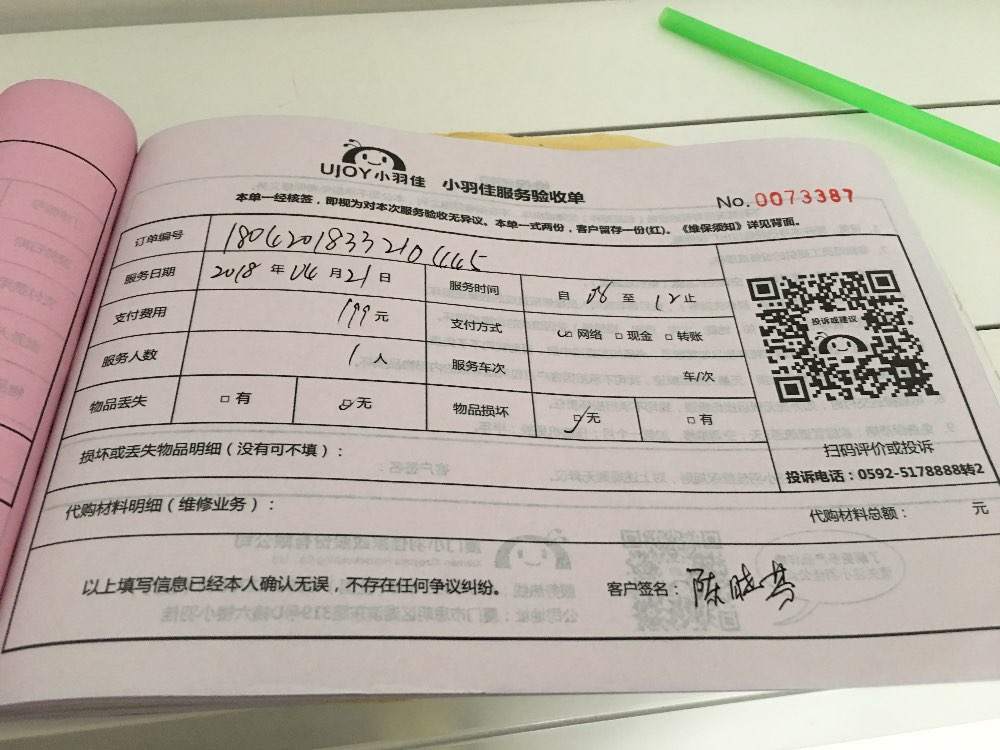 UJOY小羽佳 小羽佳服务验收单
No.0073387
本单一经核签，即视为对本次服务验收无异议。本单一式两份，客户留存一份(红)。《维保须知》详见背面。
订单编号
服务日期 2018 年 04 月 21 日 服务时间 自 08 至 12 止
支付费用 199 元 支付方式 网络 现金 转账
服务人数 1 人 服务车次 车/次
物品丢失 有 无 物品损坏 无 有
投诉或建议
扫码评价或投诉
投诉电话：0592-5178888转2
损坏或丢失物品明细（没有可不填）：
代购材料明细（维修业务）： 代购材料总额： 元
以上填写信息已经本人确认无误，不存在任何争议纠纷。 客户签名：陈